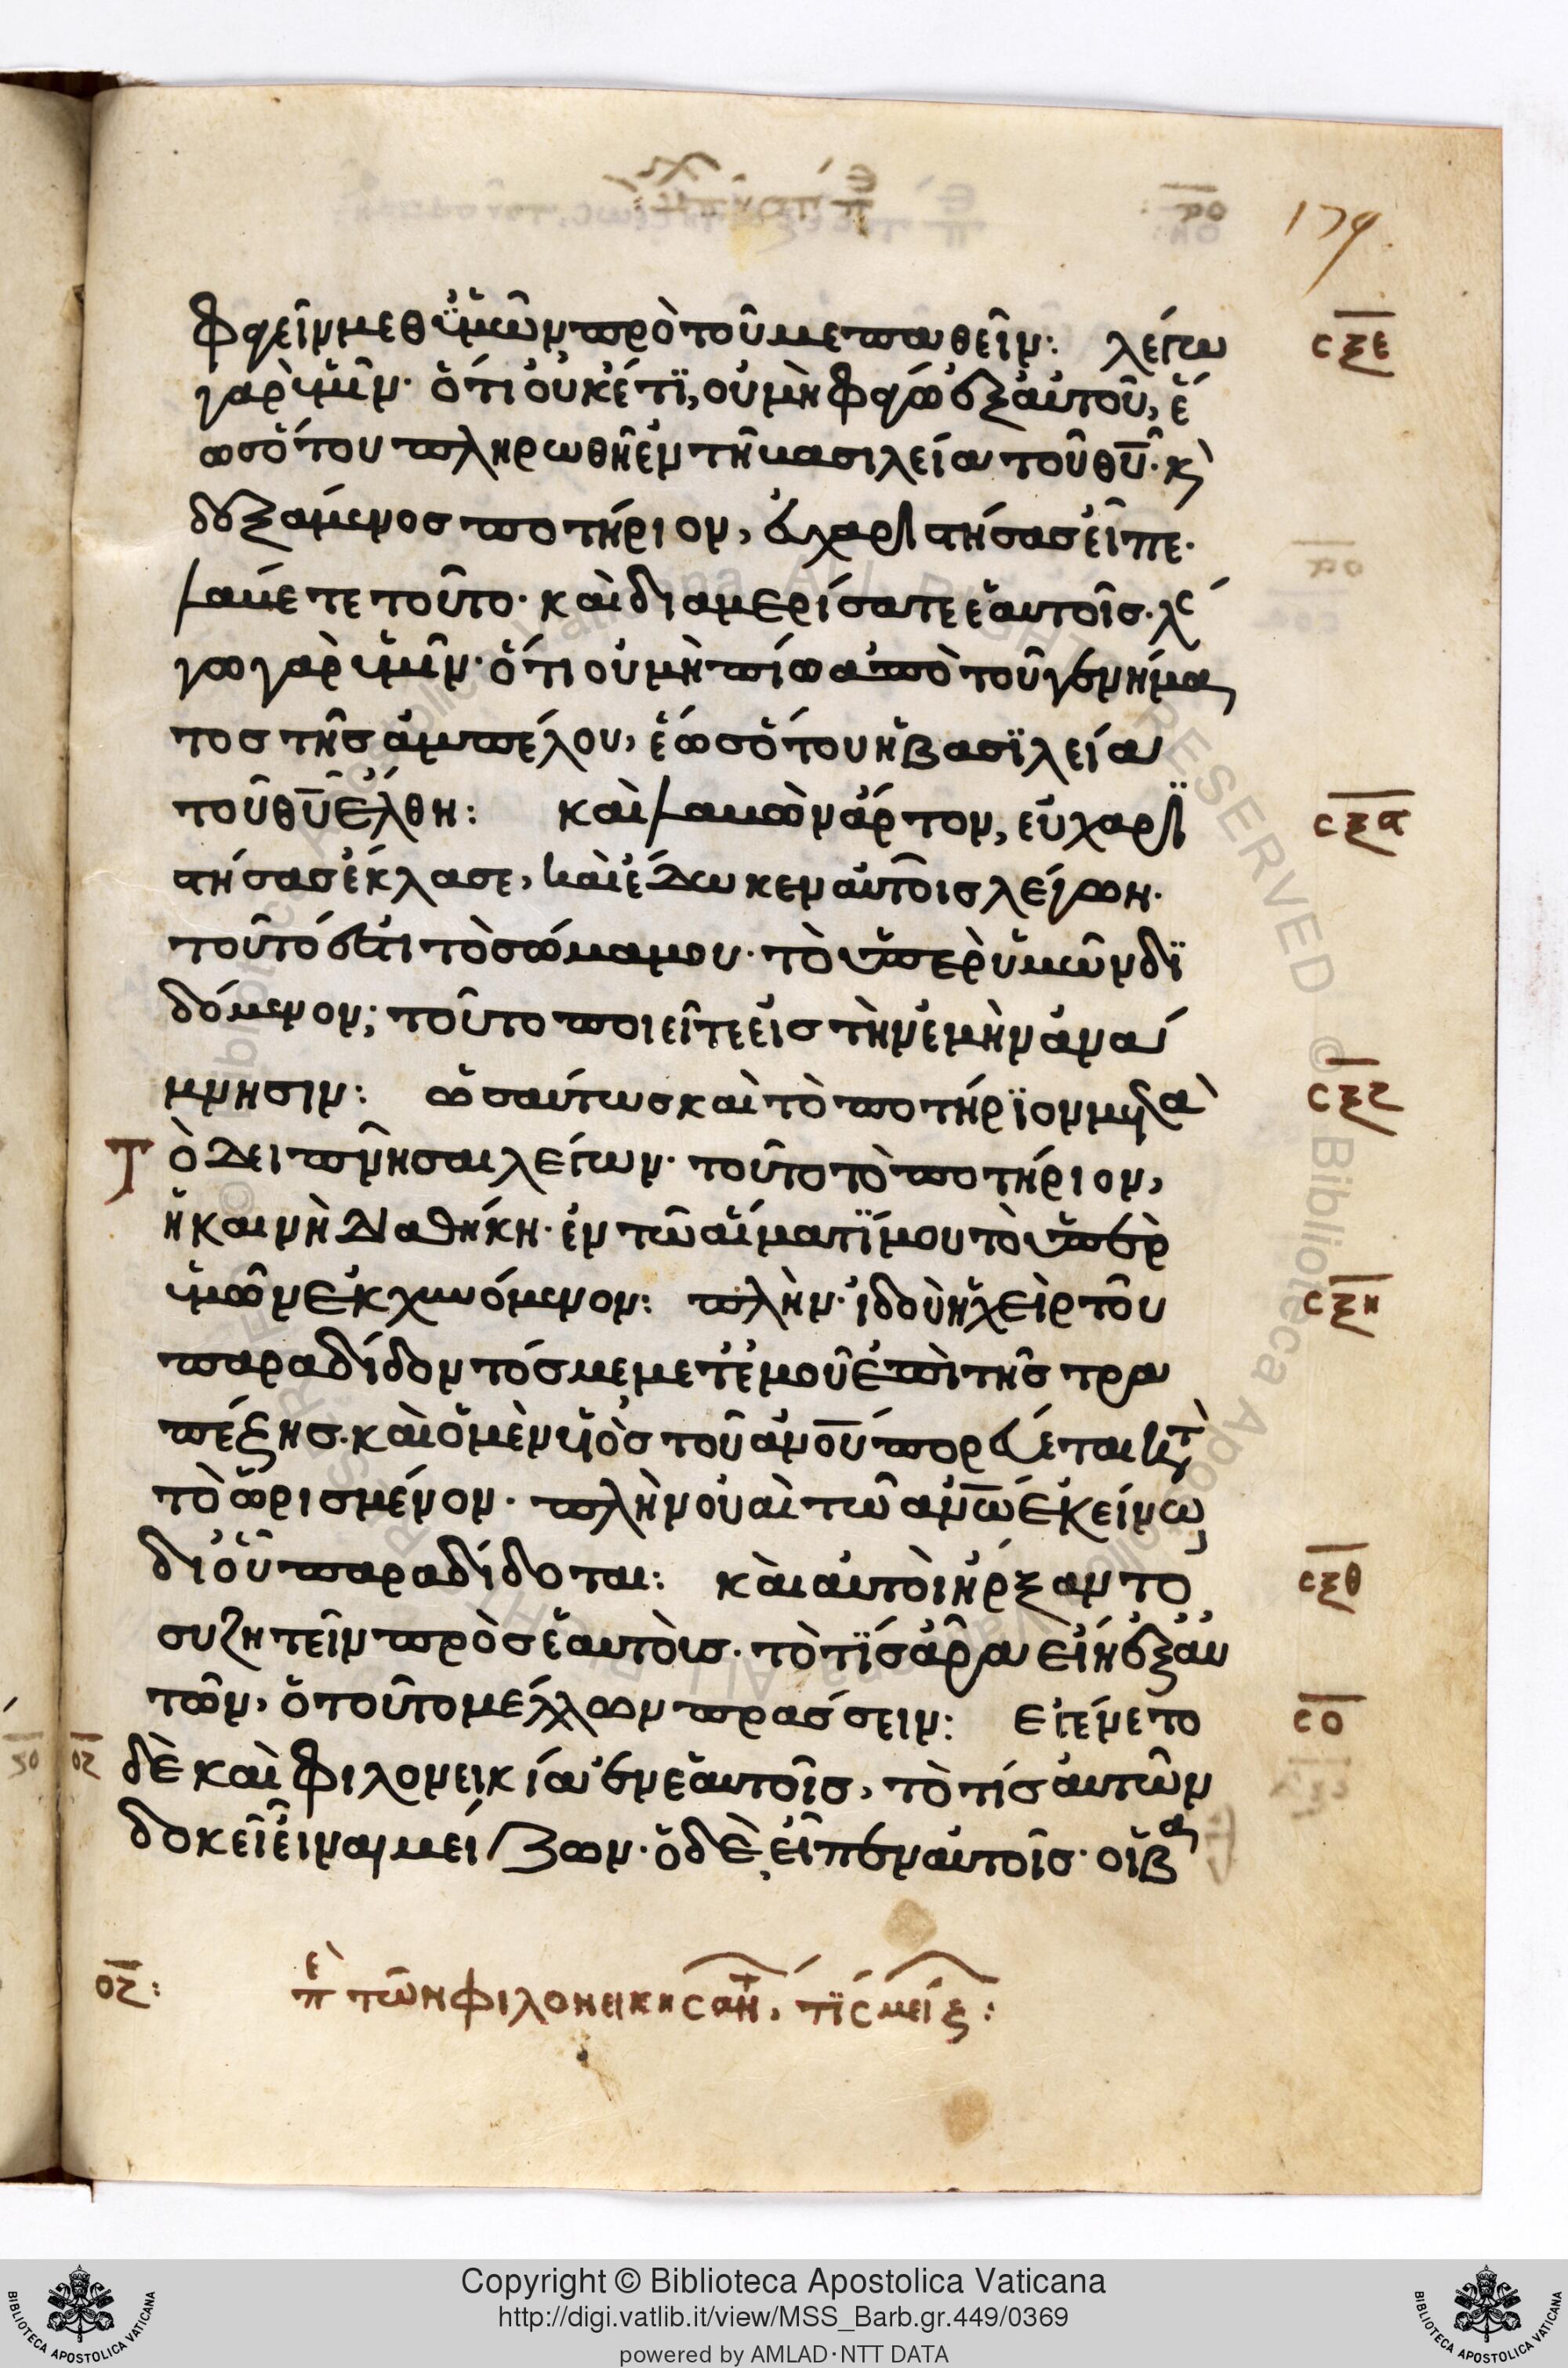 179
φαγεῖν μεθ ὑμῶν πρὸ τοῦ με παθεῖν: λέγω σξε
γὰρ ὑμῖν· ὅτι οὐκέτϊ, οὐ μὴ φάγω ἐξ αὐτοῦ, ἕ
ωσ ὅτου πληρωθῆ ἐν τῆ βασιλεία τοῦ θυ· κ
δεξάμενοσ ποτήριον, εὐχαριστήσασ εἶπε·
λάβετε τοῦτο· καὶ διαμερίσατε ἑαυτοῖσ· λέ
γω γὰρ ὑμῖν· ὅτι οὐ μὴ πίω ἀπὸ τοῦ γεννήμα
τοσ τῆσ ἀμπέλου, ἕωσ ὅτου ἡ βασϊλεία
τοῦ θυ ἔλθη: καὶ λαβὼν ἄρτον, εὐχαρι
στήσασ ἔκλασε, καὶ ἔδωκεν αὐτοῖσ λέγων·
τοῦτό ἐστι τὸ σῶμά μου· τὸ ὑπὲρ ὑμῶν δϊ
δόμενον; τοῦτο ποιεῖτε εἰσ τὴν ἐμὴν ἀνά
μνησιν: ὡσαύτωσ καὶ τὸ ποτήρϊον μετὰ σξζ
Τὸ δειπνῆσαι λέγων· τοῦτο τὸ ποτήριον,
ἡ καινὴ διαθήκη· ἐν τῶ αἵματί μου τὸ ὑπὲρ
ὑμῶν ἐκχυνόμενον: πλὴν· ἰδοὺ ἡ χεὶρ τοῦ σξη
παραδίδοντόσ με μετ ἐμοῦ ἐπὶ τῆσ τρα
πέζησ· καὶ ὁ μὲν υἱὸσ τοῦ ἀνου πορεύεται κατὰ
τὸ ὡρισμένον· πλὴν οὐαὶ τῶ ανω ἐκείνω
δι οὗ παραδίδοται: καὶ αὐτοὶ ἤρξαντο σξθ
συζητεῖν πρὸσ ἑαυτοὺσ· τὸ τίσ ἄρα εἴη ἐξ αὐ
τῶν, ὁ τοῦτο μέλλων πράσσειν: ἐγένετο σο
οζ δὲ καὶ φιλονεικία ἐν ἑαυτοῖσ, τὸ τίσ αὐτῶν
δοκεῖ εἶναι μείζων· ὁ δὲ εἶπεν αὐτοῖσ· οἱ βα
οζ: πε τῶν φιλονεικησαντ, τίς μείζ:
Copyright © Biblioteca Apostolica Vaticana
http://digi.vatlib.it/view/MSS_Barb.gr.449/0369
powered by AMLAD·NTT DATA
BIBLIOTECA APOSTOLICA VATICANA
BIBLIOTECA APOSTOLICA VATICANA